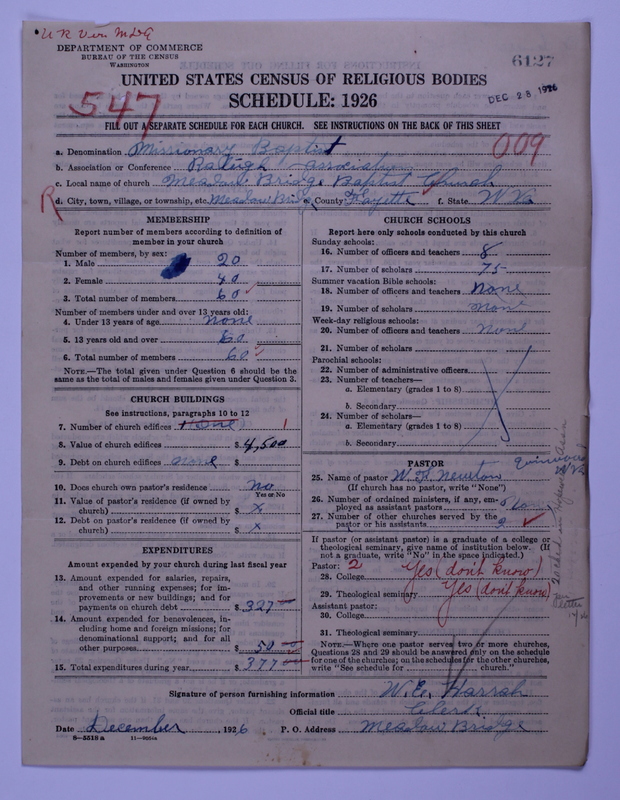 DEPARTMENT OF COMMERCE
BUREAU OF THE CENSUS
WASHINGTON
6127
UNITED STATES CENSUS OF RELIGIOUS BODIES
SCHEDULE: 1926
DEC 28 1926
547
FILL OUT A SEPARATE SCHEDULE FOR EACH CHURCH. SEE INSTRUCTIONS ON THE BACK OF THIS SHEET
009
a. Denomination Missionary Baptist
b. Association or Conference Raleigh association
c. Local name of church Meadow Bridge Baptist Church
R
d. City, town, village, or township, etc. Meadow Bridge County Fayette f. State W Va
MEMBERSHIP
Report number of members according to definition of
member in your church
Number of members, by sex:
1. Male 20
2. Female 40
3. Total number of members 60
Number of members under and over 13 years old:
4. Under 13 years of age none
5. 13 years old and over 60
6. Total number of members 60
NOTE.—The total given under Question 6 should be the
same as the total of males and females given under Question 3.
CHURCH BUILDINGS
See instructions, paragraphs 10 to 12
7. Number of church edifices one 1
8. Value of church edifices $ 4,500
9. Debt on church edifices none $
10. Does church own pastor's residence? no
Yes or No
11. Value of pastor's residence (if owned by
church) $ x
12. Debt on pastor's residence (if owned by
church) $ x
EXPENDITURES
Amount expended by your church during last fiscal year
13. Amount expended for salaries, repairs,
and other running expenses; for im-
provements or new buildings; and for
payments on church debt $ 327
14. Amount expended for benevolences, in-
cluding home and foreign missions; for
denominational support; and for all
other purposes $ 50
15. Total expenditures during year $ 377
CHURCH SCHOOLS
Report here only schools conducted by this church
Sunday schools:
16. Number of officers and teachers 8
17. Number of scholars 75
Summer vacation Bible schools:
18. Number of officers and teachers none
19. Number of scholars none
Week-day religious schools:
20. Number of officers and teachers none
21. Number of scholars
Parochial schools:
22. Number of administrative officers
23. Number of teachers—
a. Elementary (grades 1 to 8)
b. Secondary
24. Number of scholars—
a. Elementary (grades 1 to 8)
b. Secondary
PASTOR
25. Name of pastor W. H. Newton
(If church has no pastor, write "None")
26. Number of ordained ministers, if any, em-
ployed as assistant pastors
27. Number of other churches served by the
pastor or his assistants 2
If pastor (or assistant pastor) is a graduate of a college or
theological seminary, give name of institution below. (If
not a graduate, write "No" in the space indicated.)
Pastor: 2
28. College Yes (don't know)
29. Theological seminary Yes (don't know)
Assistant pastor:
30. College
31. Theological seminary
NOTE.—Where one pastor serves two or more churches,
Questions 28 and 29 should be answered only on the schedule
for one of the churches; on the schedules for the other churches,
write "See schedule for church."
Signature of person furnishing information W. E. Harrah
Official title Clerk
Date December 1926 P. O. Address Meadow Bridge
S—5518 a